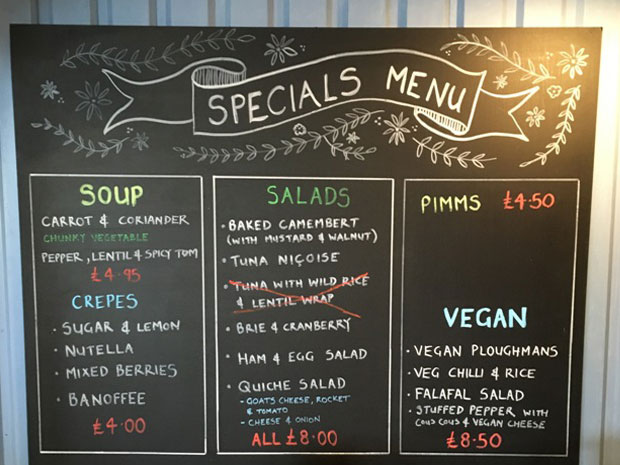 SPECIALS MENU
SOUP
CARROT & CORIANDER
CHUNKY VEGETABLE
PEPPER, LENTIL & SPICY TOM
£4.95
CREPES
• SUGAR & LEMON
• NUTELLA
• MIXED BERRIES
• BANOFFEE
£4.00
SALADS
• BAKED CAMEMBERT
(WITH MUSTARD & WALNUT)
• TUNA NIÇOISE
• TUNA WITH WILD RICE
& LENTIL WRAP
• BRIE & CRANBERRY
• HAM & EGG SALAD
• QUICHE SALAD
- GOATS CHEESE, ROCKET
& TOMATO
- CHEESE & ONION
ALL £8.00
PIMMS £4.50
VEGAN
• VEGAN PLOUGHMANS
• VEG CHILLI & RICE
• FALAFAL SALAD
• STUFFED PEPPER WITH
COUS COUS & VEGAN CHEESE
£8.50